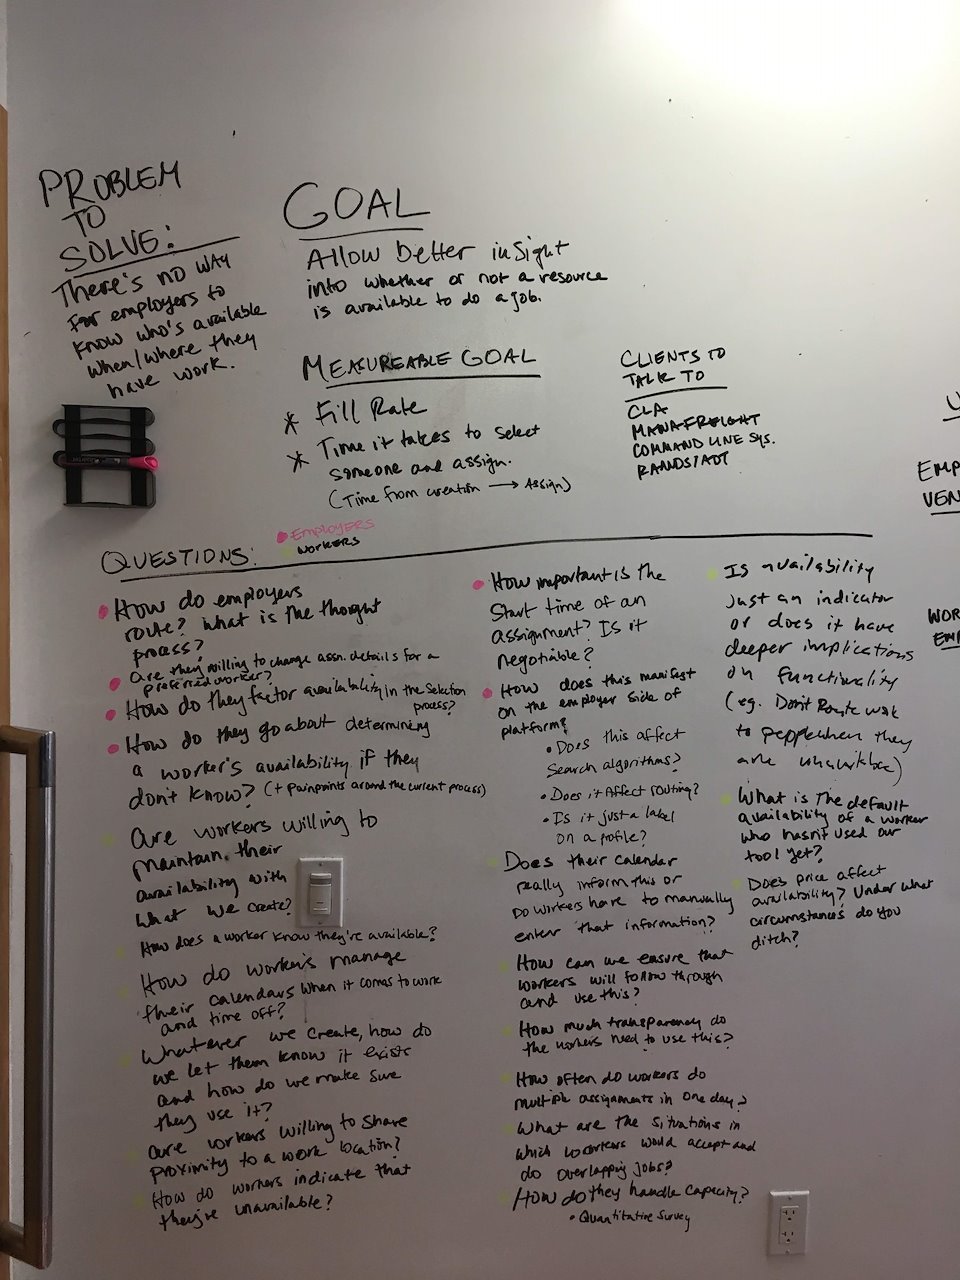 PROBLEM
TO
SOLVE:
There's no way
for employers to
know who's available
when/where they
have work.
GOAL
Allow better insight
into whether or not a resource
is available to do a job.
MEASUREABLE GOAL
* Fill Rate
* Time it takes to select
someone and assign.
(Time from creation → Assign)
CLIENTS TO
TALK TO
CLA
MANAFREIGHT
COMMAND LINE SYS.
RANDSTADT
U
EMP
VEN
WOR
EMP
EMPLOYERS
WORKERS
QUESTIONS:
• How do employers
route? What is the thought
process?
• Are they willing to change assn. details for a
preferred worker?
• How do they factor availability in the selection
process?
• How do they go about determining
a worker's availability if they
don't know? (+ painpoints around the current process)
Are workers willing to
maintain their
availability with
what we create?
How does a worker know they're available?
How do workers manage
their calendars when it comes to work
and time off?
Whatever we create, how do
we let them know it exists
and how do we make sure
they use it?
Are workers willing to share
proximity to a work location?
How do workers indicate that
they're unavailable?
• How important is the
start time of an
assignment? Is it
negotiable?
• How does this manifest
on the employer side of
platform?
• Does this affect
search algorithms?
• Does it affect routing?
• Is it just a label
on a profile?
Does their calendar
really inform this or
do workers have to manually
enter that information?
How can we ensure that
workers will follow through
and use this?
How much transparency do
the workers need to use this?
How often do workers do
multiple assignments in one day?
What are the situations in
which workers would accept and
do overlapping jobs?
How do they handle capacity?
• Quantitative Survey
• Is availability
just an indicator
or does it have
deeper implications
on functionality
(eg. Don't Route work
to people when they
are
• What is the default
availability of a worker
who hasn't used our
tool yet?
• Does price affect
availability? Under what
circumstances do you
ditch?